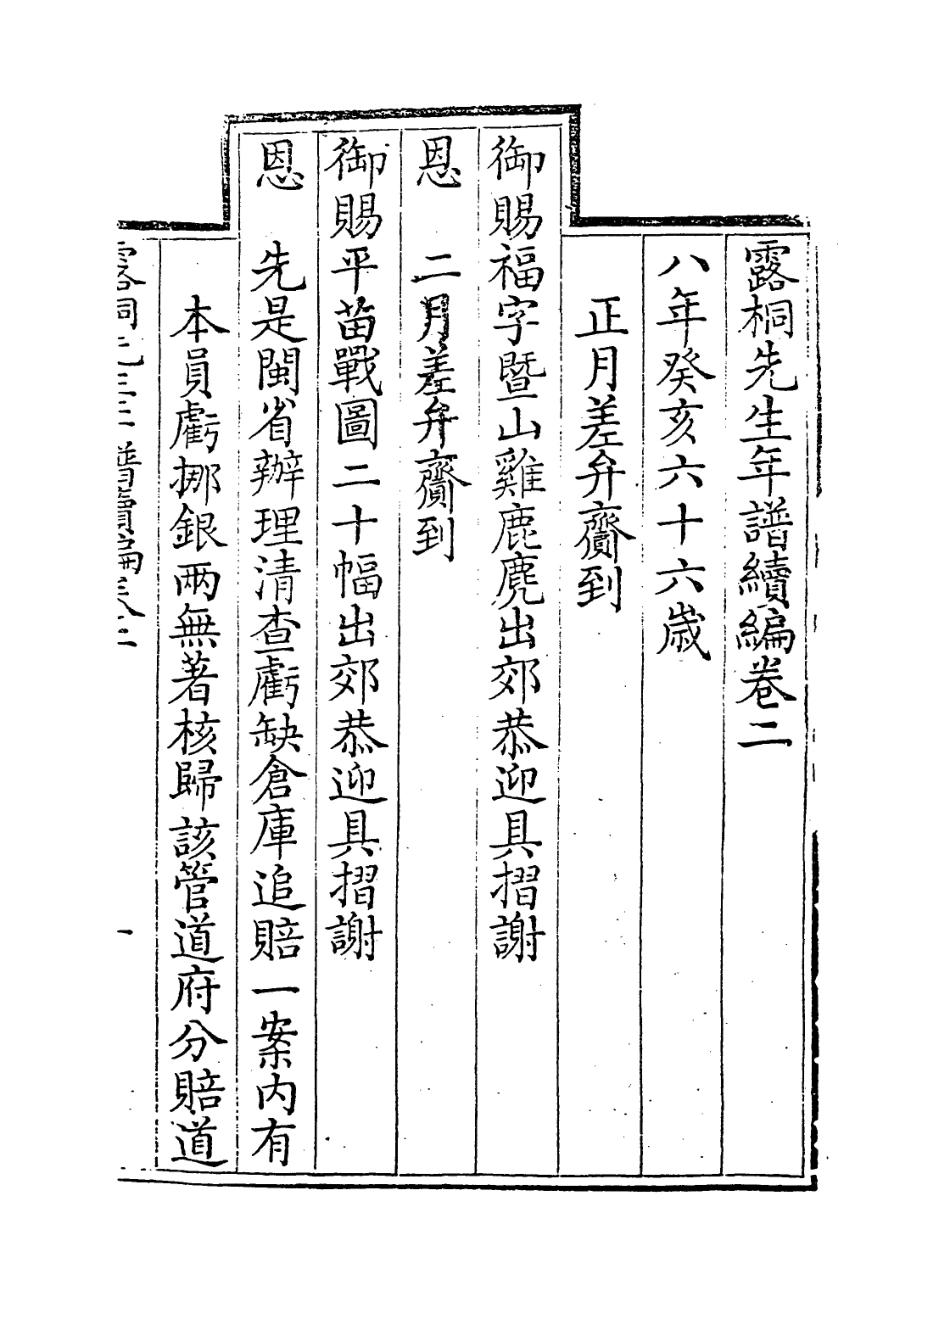 露桐先生年譜續編卷二
八年癸亥六十六歲
正月差弁齎到
御賜福字暨山雞鹿麂出郊恭迎具摺謝
恩　二月差弁齎到
御賜平苗戰圖二十幅出郊恭迎具摺謝
恩　先是閩省辦理清查虧缺倉庫追賠一案內有
本員虧挪銀兩無著核歸該管道府分賠道